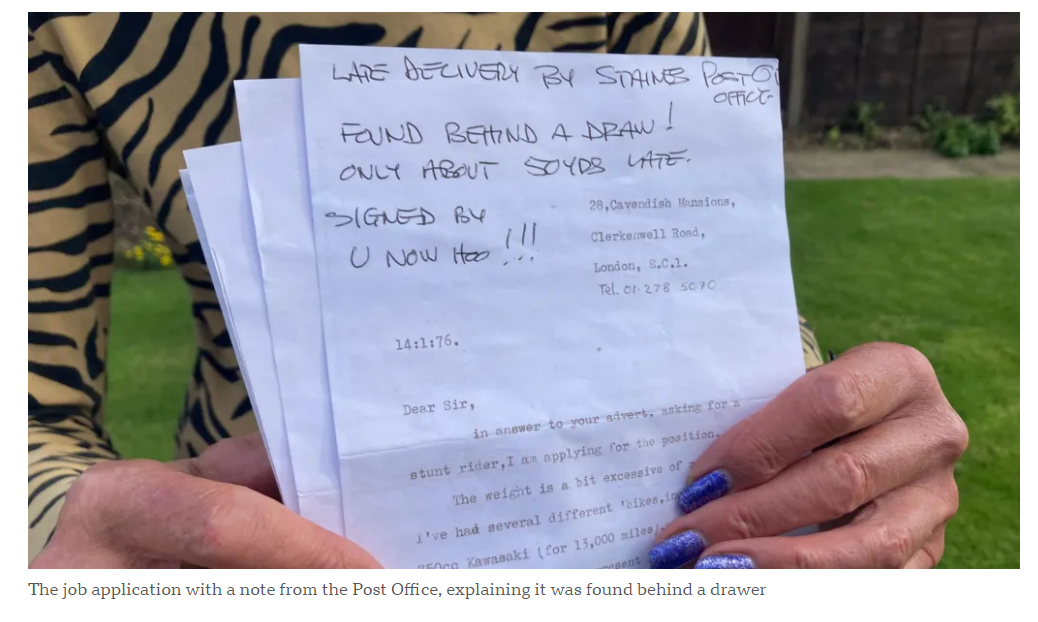 LATE DELIVERY BY STAINES POST
OFFICE
FOUND BEHIND A DRAW!
ONLY ABOUT 50YDS LATE.
SIGNED BY
U NOW HOO !!!
28,Cavendish Mansions,
Clerkenwell Road,
London, E.C.1.
Tel. 01-278 5070
14:1:76.
Dear Sir,
in answer to your advert, asking for a
stunt rider,I am applying for the position.
The weight is a bit excessive of
i've had several different 'bikes,in
750cc Kawasaki (for 15,000 miles)
The job application with a note from the Post Office, explaining it was found behind a drawer